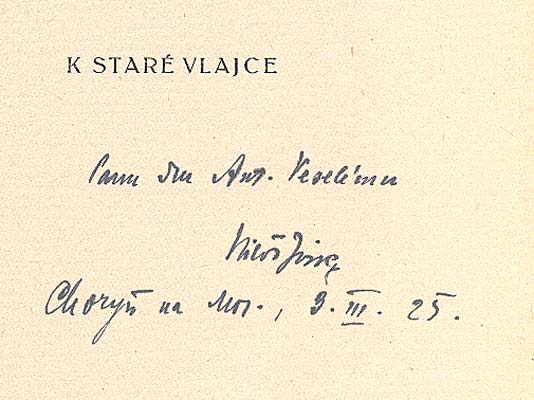 K STARÉ VLAJCE
Panu dru Ant. Veselému
Miloš Jirko
Choryň na Mor., 3. III. 25.